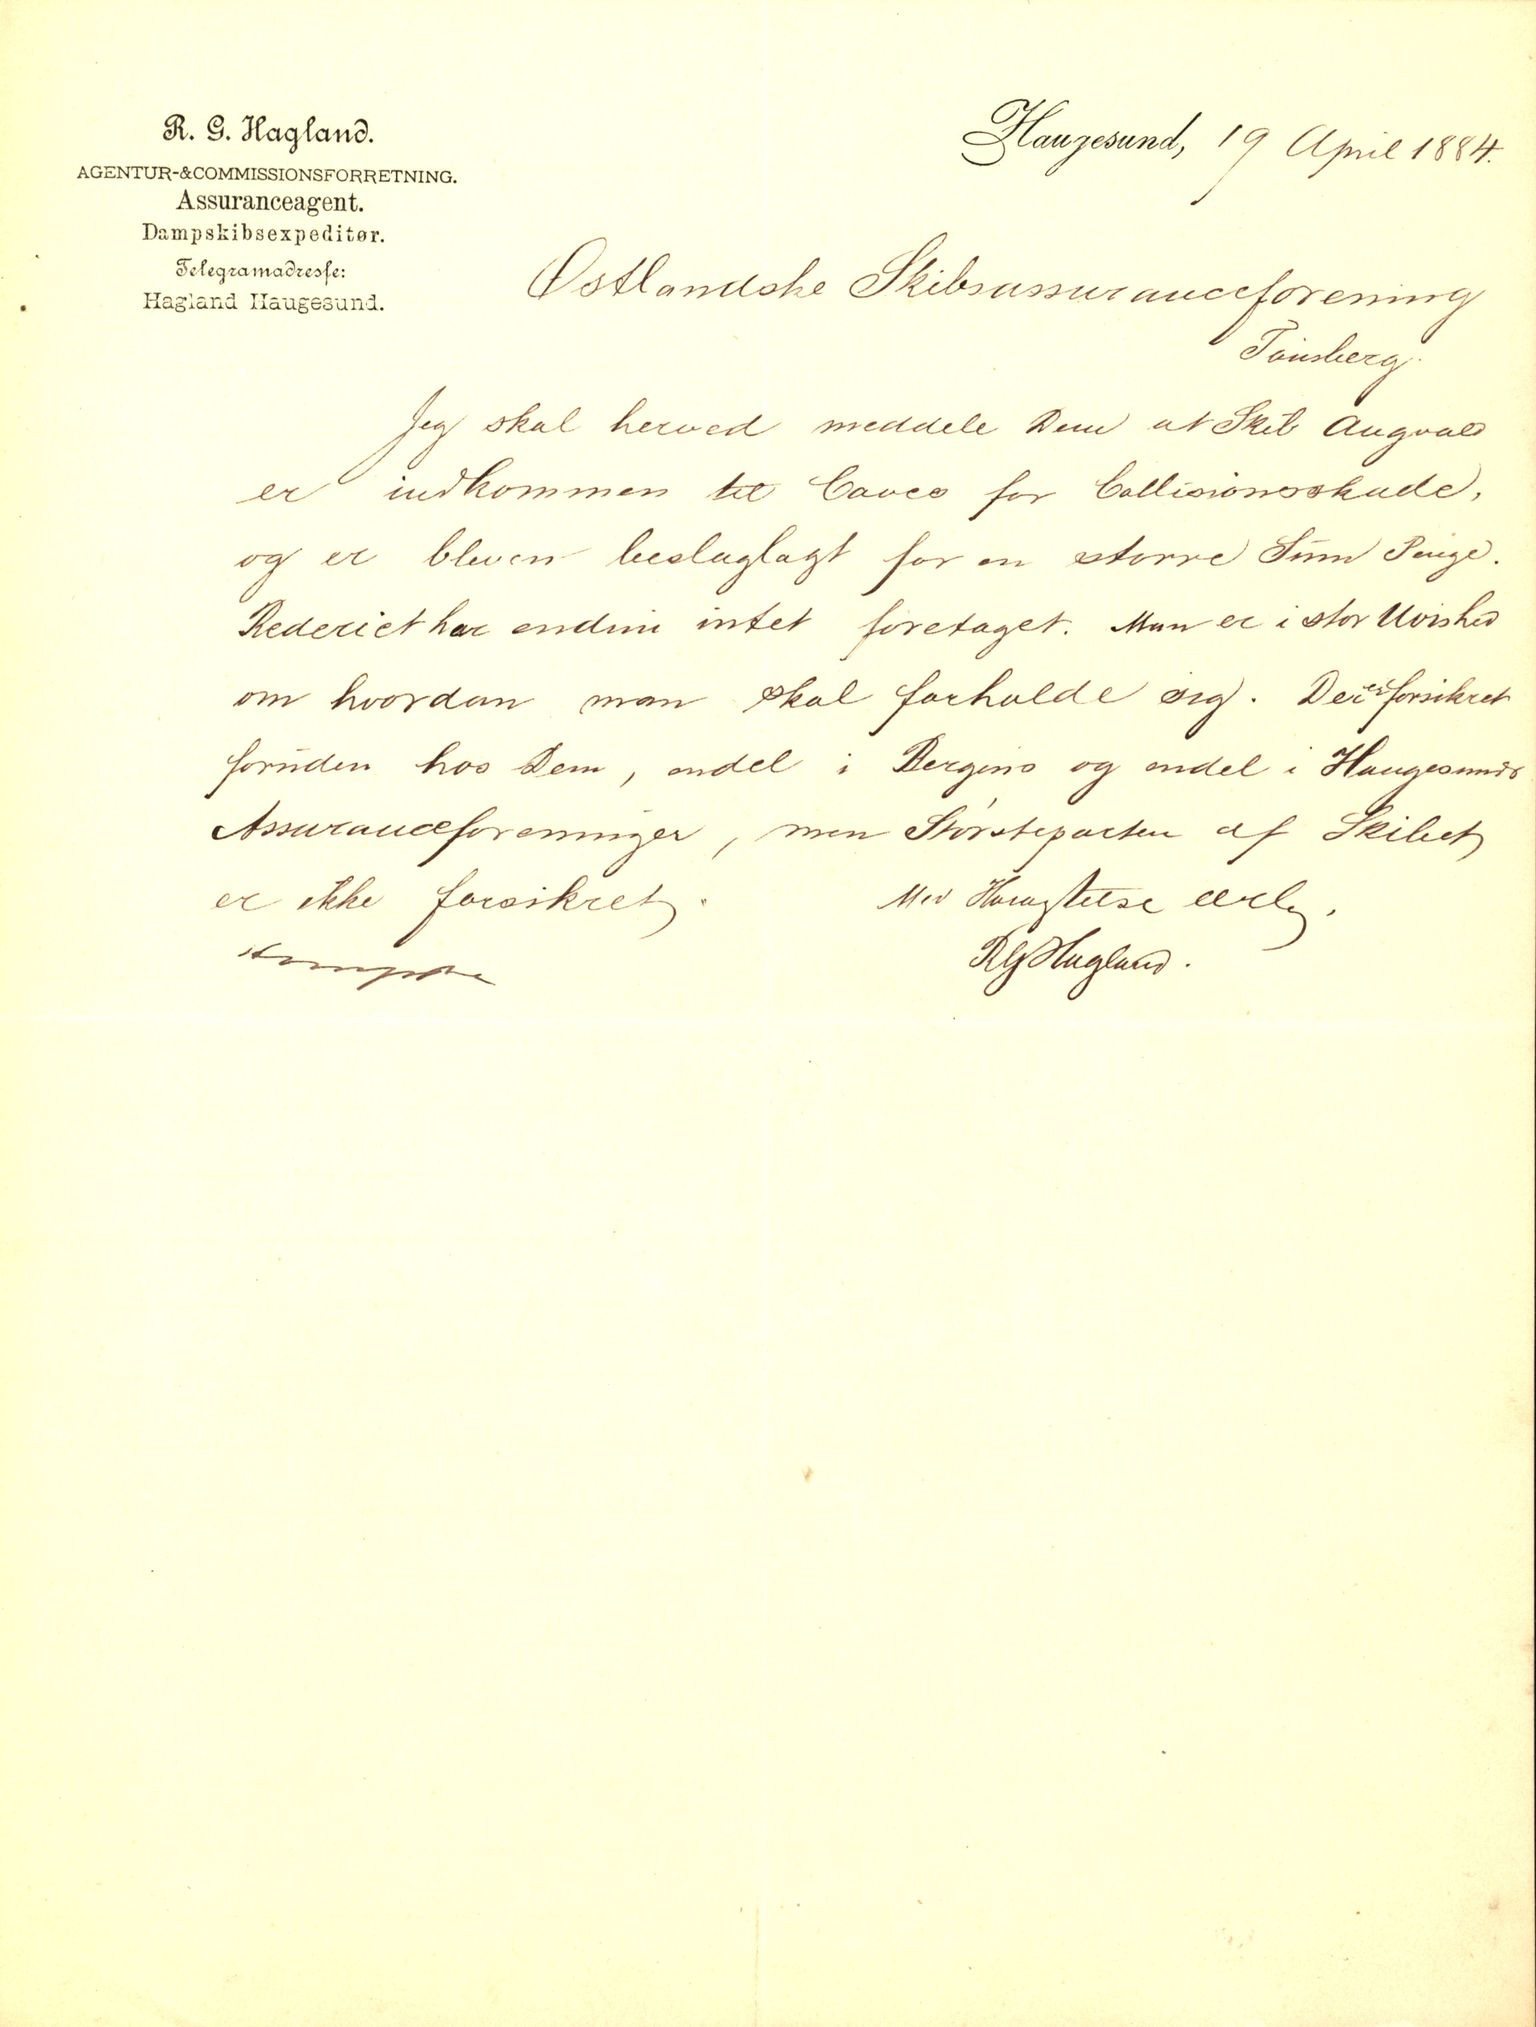 R. G. Hagland.
AGENTUR-&COMMISSIONSFORRETNING.
Assuranceagent.
Dampskibsexpeditør.
Telegramadresse:
Hagland Haugesund.
Haugesund, 19 April 1884.
Østlandske Skibsassuranceforening
Tönsberg.
Jeg skal herved meddele Dem at Skib Augvald
er indkommen til Cowes for Collisionsskade,
og er bleven beslaglagt for en större Sum Penge.
Rederiet har endnu intet foretaget. Man er i stor Uvished
om hvordan man skal forholde sig. Der er forsikret
foruden hos Dem, endel i Bergens og endel i Haugesunds
Assuranceforeninger, men Störsteparten af Skibet
er ikke forsikret.
Med Høiagtelse ærb,
RGHagland.